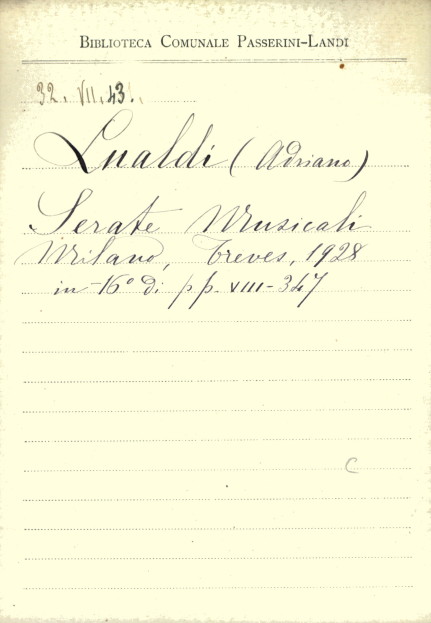 BIBLIOTECA COMUNALE PASSERINI-LANDI
32. VII. 43.
Lualdi (Adriano)
Serate Musicali
Milano, Treves, 1928
in-16° di pp. VIII-347
C